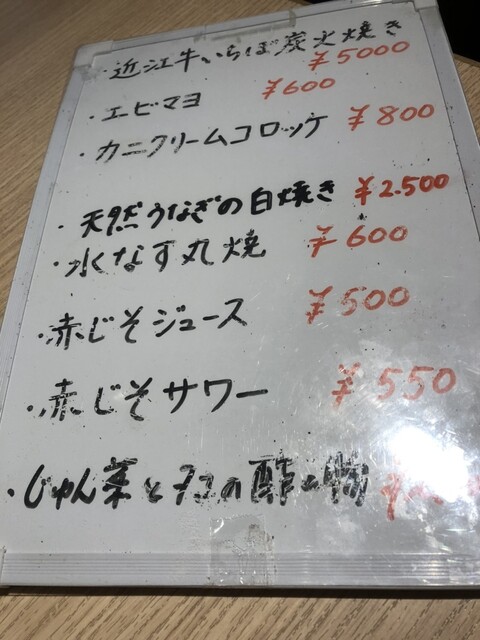 ・近江牛いちぼ炭火焼き ¥5000
・エビマヨ ¥600
・カニクリームコロッケ ¥800
・天然うなぎの白焼き ¥2.500
・水なす丸焼 ¥600
・赤じそジュース ¥500
・赤じそサワー ¥550
・じゅん菜とタコの酢の物